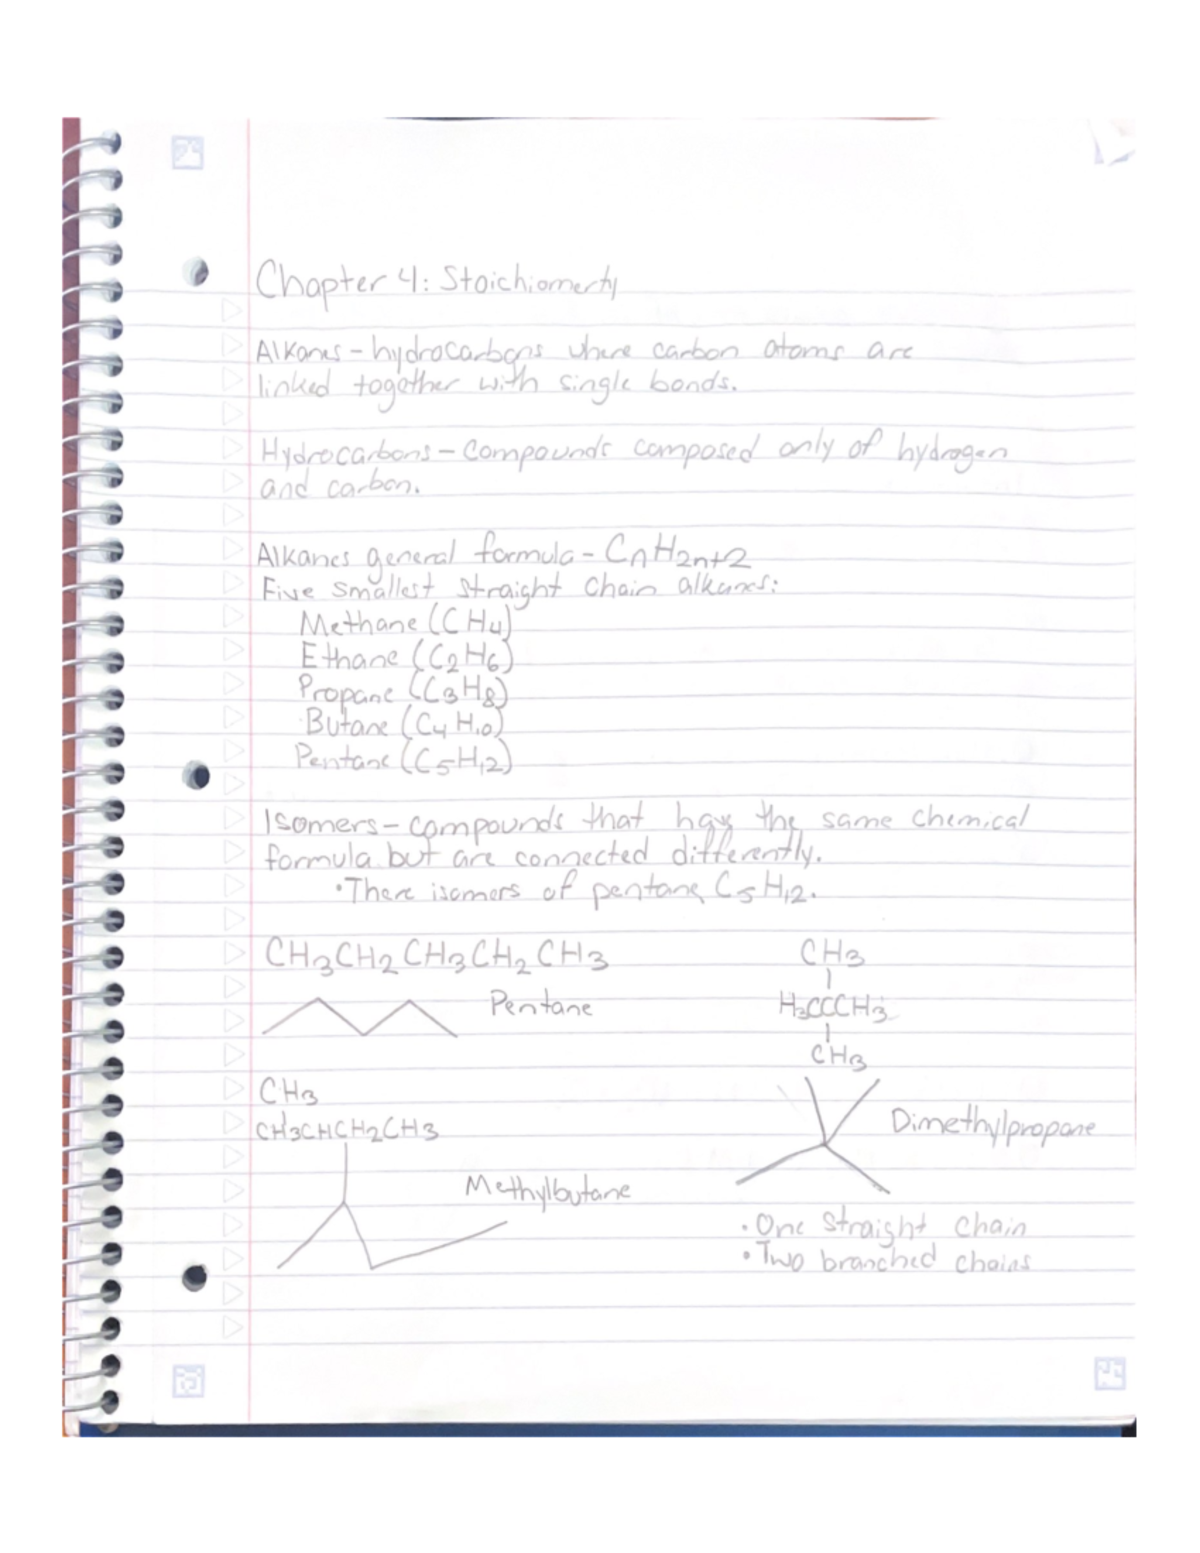 Chapter 4: Stoichiomerty
Alkanes - hydrocarbons where carbon atoms are
linked together with single bonds.
Hydrocarbons - compounds composed only of hydrogen
and carbon.
Alkanes general formula - CnH2n+2
Five smallest straight chain alkanes:
Methane (CH4)
Ethane (C2H6)
Propane (C3H8)
Butane (C4H10)
Pentane (C5H12)
Isomers - compounds that have the same chemical
formula but are connected differently.
• There isomers of pentane, C5H12.
CH3CH2CH3CH2CH3
Pentane
CH3
H3CCCH3
CH3
Dimethylpropane
CH3
CH3CHCH2CH3
Methylbutane
• One straight chain
• Two branched chains